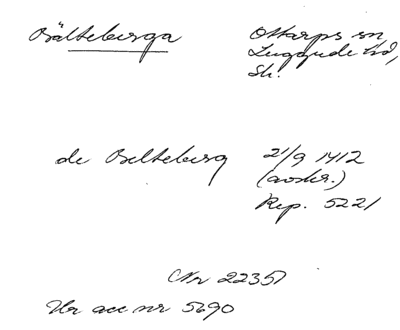 Bälteberga Ottarps sn,
Luggude hd,
Sk.
de Belteberg 21/9 1412
(avskr.)
Rep. 5221
Nr 22351
Ur acc nr 5690